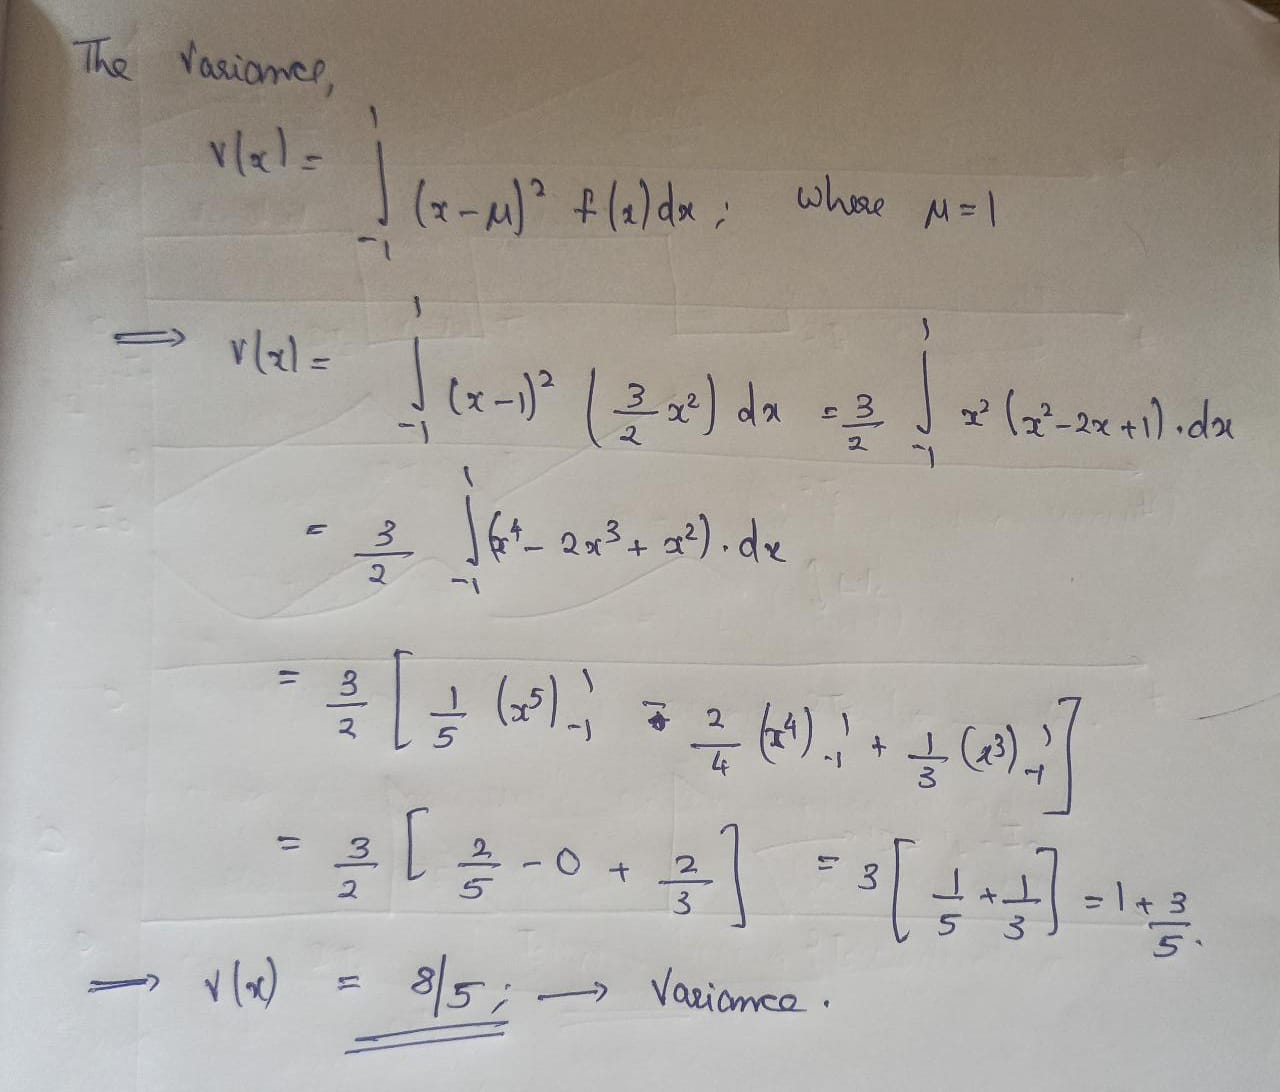 The Variance,
V(x) = ∫_{-1}^{1} (x-μ)² f(x) dx ; where μ=1
⟹ V(x) = ∫_{-1}^{1} (x-1)² (3/2 x²) dx = 3/2 ∫_{-1}^{1} x² (x²-2x+1).dx
= 3/2 ∫_{-1}^{1} (x⁴ - 2x³ + x²).dx
= 3/2 [ 1/5 (x⁵)_{-1}^{1} - 2/4 (x⁴)_{-1}^{1} + 1/3 (x³)_{-1}^{1} ]
= 3/2 [ 2/5 - 0 + 2/3 ] = 3 [ 1/5 + 1/3 ] = 1 + 3/5.
⟹ V(x) = 8/5 ; ⟶ Variance.